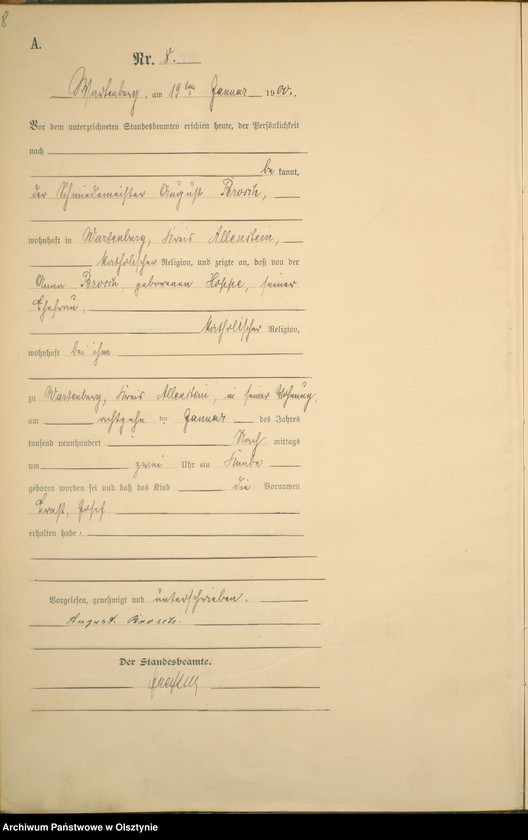 8
A.
Nr. 8.
Wartenberg, am 19ten Januar 1900.
Vor dem unterzeichneten Standesbeamten erschien heute, der Persönlichkeit
nach
be kannt,
der Schmiedemeister August Brosch,
wohnhaft in Wartenberg, Kreis Allenstein,
katholischer Religion, und zeigte an, daß von der
Anna Brosch, geborenen Hoppe, seiner
Ehefrau,
katholischer Religion,
wohnhaft bei ihm
zu Wartenberg, Kreis Allenstein, in seiner Wohnung,
am achtzehn ten Januar des Jahres
tausend neunhundert Nach mittags
um zwei Uhr ein Knabe
geboren worden sei und daß das Kind die Vornamen
Ernst, Josef
erhalten habe.
Vorgelesen, genehmigt und unterschrieben.
August Brosch.
Der Standesbeamte.
Archiwum Państwowe w Olsztynie